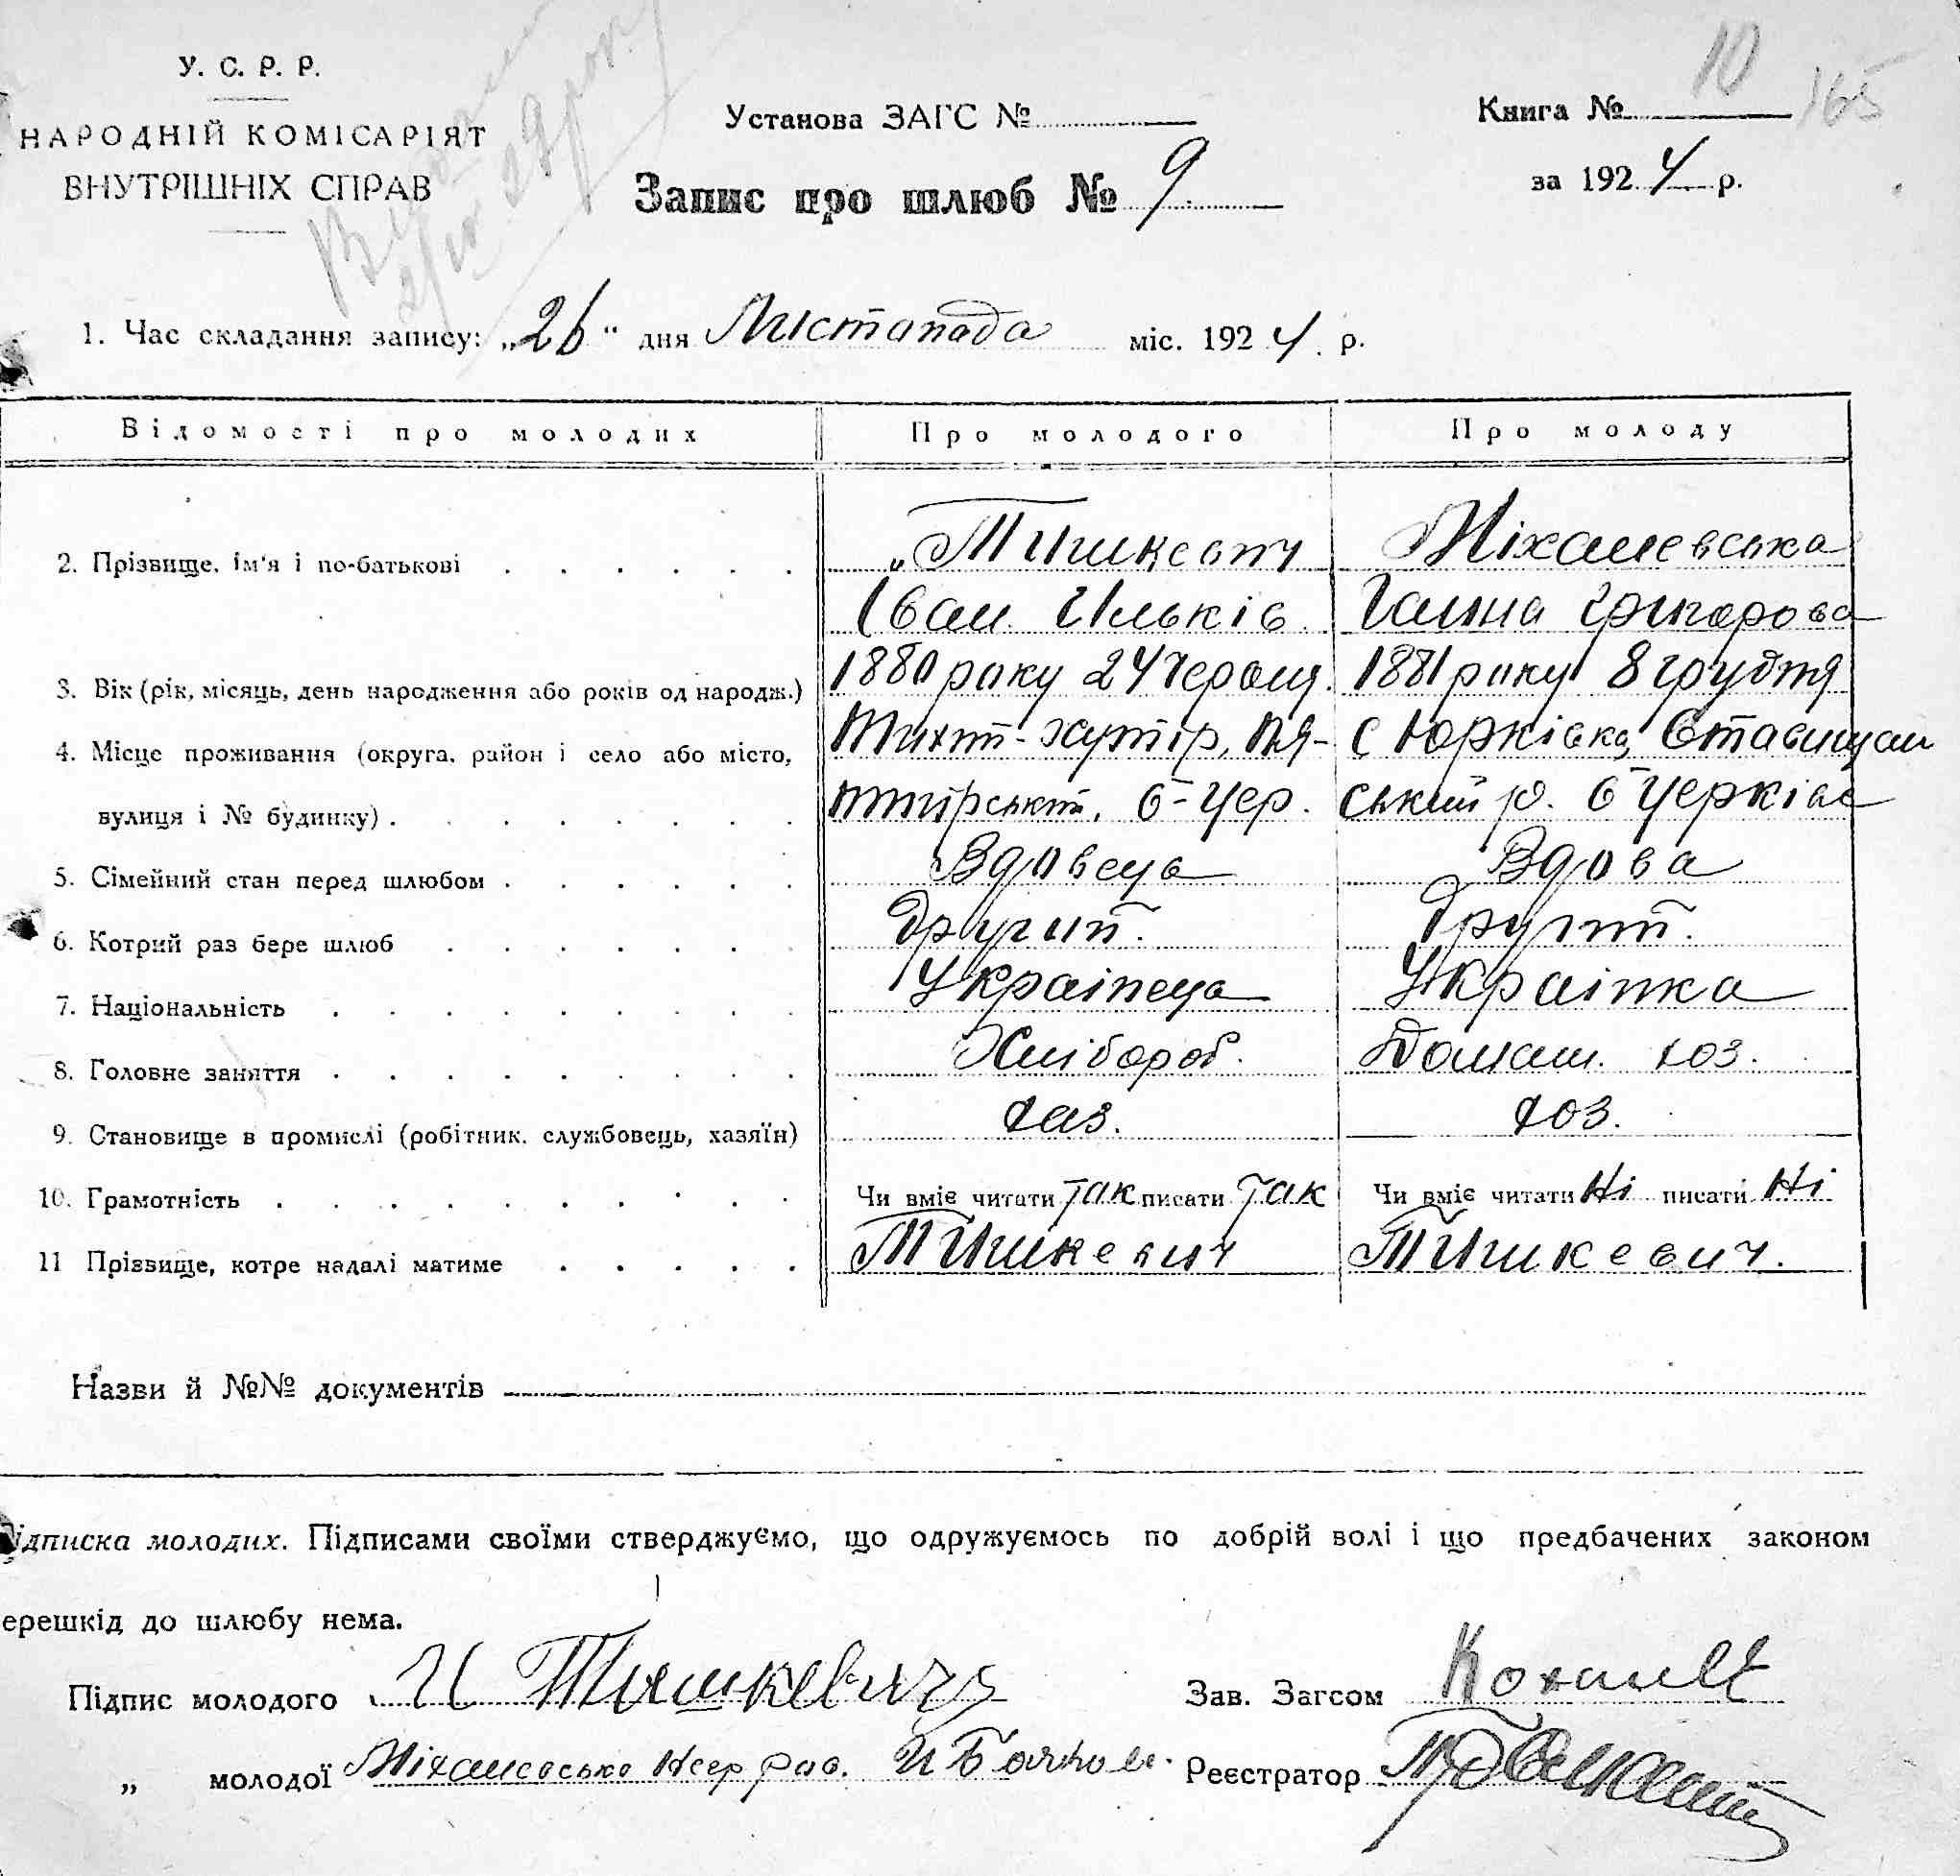 У. С. Р. Р.
НАРОДНІЙ КОМІСАРІЯТ
ВНУТРІШНІХ СПРАВ
Установа ЗАГС №
Запис про шлюб № 9
Книга № 10
165
за 1924 р.
1. Час складання запису: „26“ дня Листопада міс. 1924. р.
Відомості про молодих Про молодого Про молоду
2. Прізвище, ім'я і по-батькові Тишкевич Міхалевська
Іван Ильків Ганна Григорова
3. Вік (рік, місяць, день народження або років од народж.) 1880 року 24 Червня. 1881 року 8 грудня
4. Місце проживання (округа, район і село або місто, хутір, с Юрківка, Ставищан
вулиця і № будинку) б-Чер. ський р. б Черківс
5. Сімейний стан перед шлюбом Вдовець Вдова
6. Котрий раз бере шлюб Другий. Другий.
7. Національність Українець Українка
8. Головне заняття Хлібороб. Домаш. хоз.
9. Становище в промислі (робітник, службовець, хазяїн) хаз. хоз.
10. Грамотність Чи вміє читати Так писати Так Чи вміє читати Ні писати Ні
11 Прізвище, котре надалі матиме Тишкевич Тишкевич.
Назви й №№ документів
ідписка молодих. Підписами своїми стверджуємо, що одружуємось по добрій волі і що предбачених законом
ерешкід до шлюбу нема.
Підпис молодого И Тишкевичъ Зав. Загсом
„ молодої Міхалевська Реєстратор